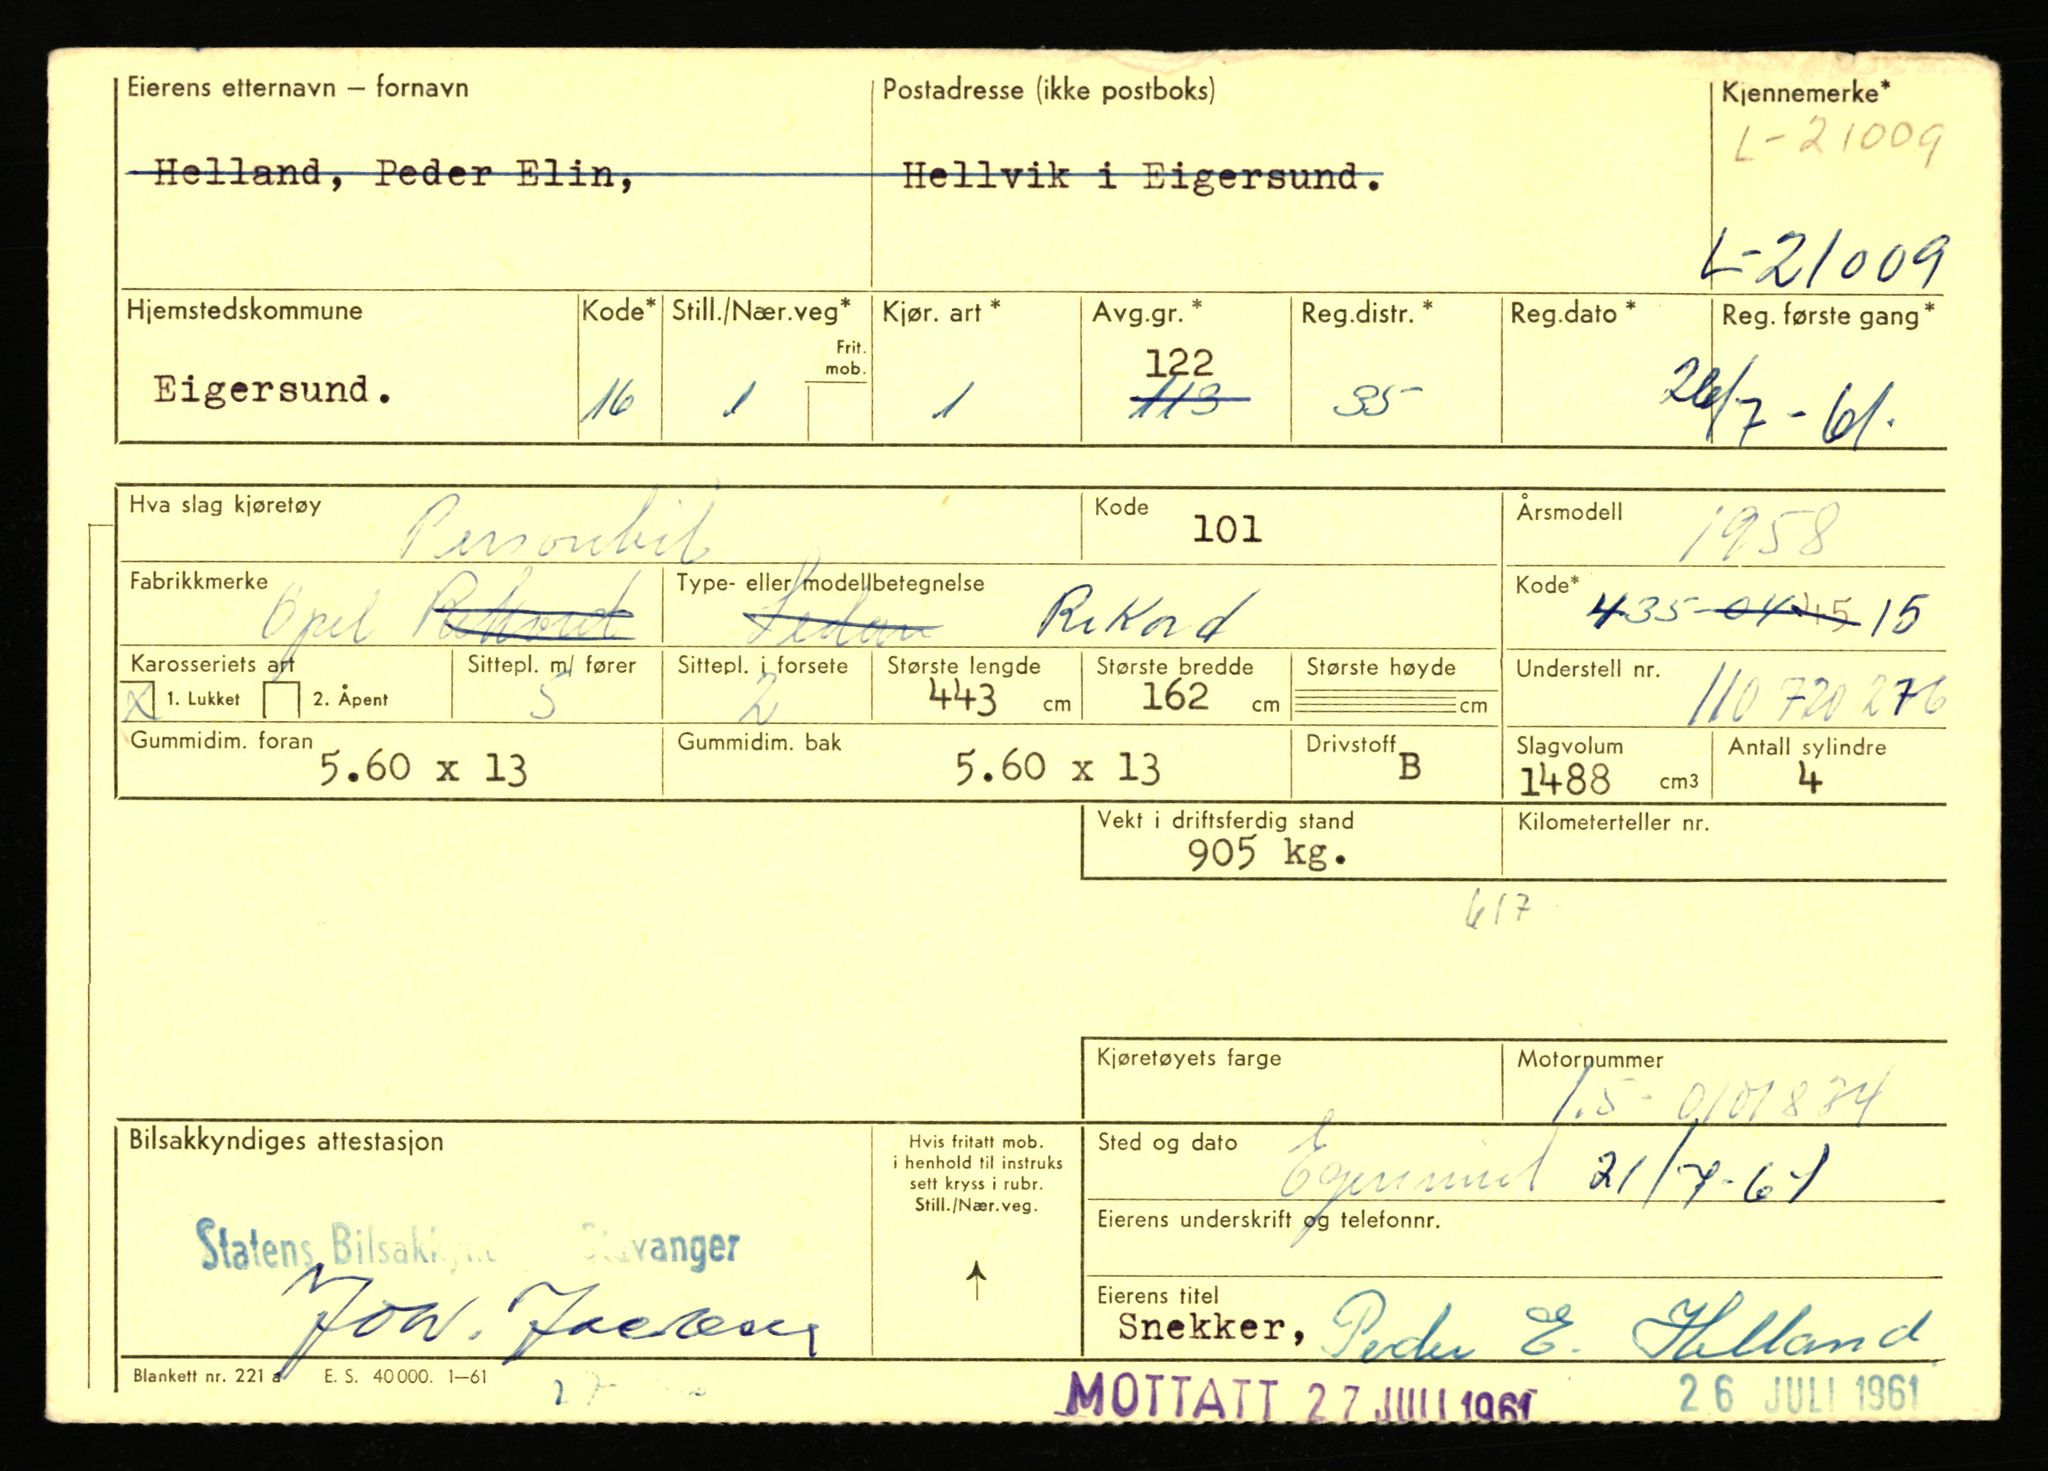 Eierens etternavn – fornavn
Postadresse (ikke postboks)
Kjennemerke*
L-21009
Helland, Peder Elin,
Hellvik i Eigersund.
L-21009
Hjemstedskommune
Kode*
Still./Nær.veg*
Frit. mob.
Kjør. art *
Avg.gr. *
Reg.distr. *
Reg.dato *
Reg. første gang*
122
Eigersund.
16
1
1
113
35
26/7-61.
Hva slag kjøretøy
Personbil
Kode
101
Årsmodell
1958
Fabrikkmerke
Opel Rekord
Type- eller modellbetegnelse
Sedan Rekord
Kode*
435-04 45 15
Karosseriets art
X 1. Lukket
2. Åpent
Sittepl. m/ fører
5
Sittepl. i forsete
2
Største lengde
443 cm
Største bredde
162 cm
Største høyde
cm
Understell nr.
110 720 276
Gummidim. foran
5.60 x 13
Gummidim. bak
5.60 x 13
Drivstoff
B
Slagvolum
1488 cm3
Antall sylindre
4
Vekt i driftsferdig stand
905 kg.
Kilometerteller nr.
617
Kjøretøyets farge
Motornummer
1.5-0101834
Bilsakkyndiges attestasjon
Hvis fritatt mob.
i henhold til instruks
sett kryss i rubr.
Still./Nær.veg.
Sted og dato
Egersund 21/7-61
Eierens underskrift og telefonnr.
Statens Bilsakky
vanger
Eierens titel
Snekker, Peder E. Helland
Blankett nr. 221 a E. S. 40000. 1–61
MOTTATT 27 JULI 1961
26 JULI 1961